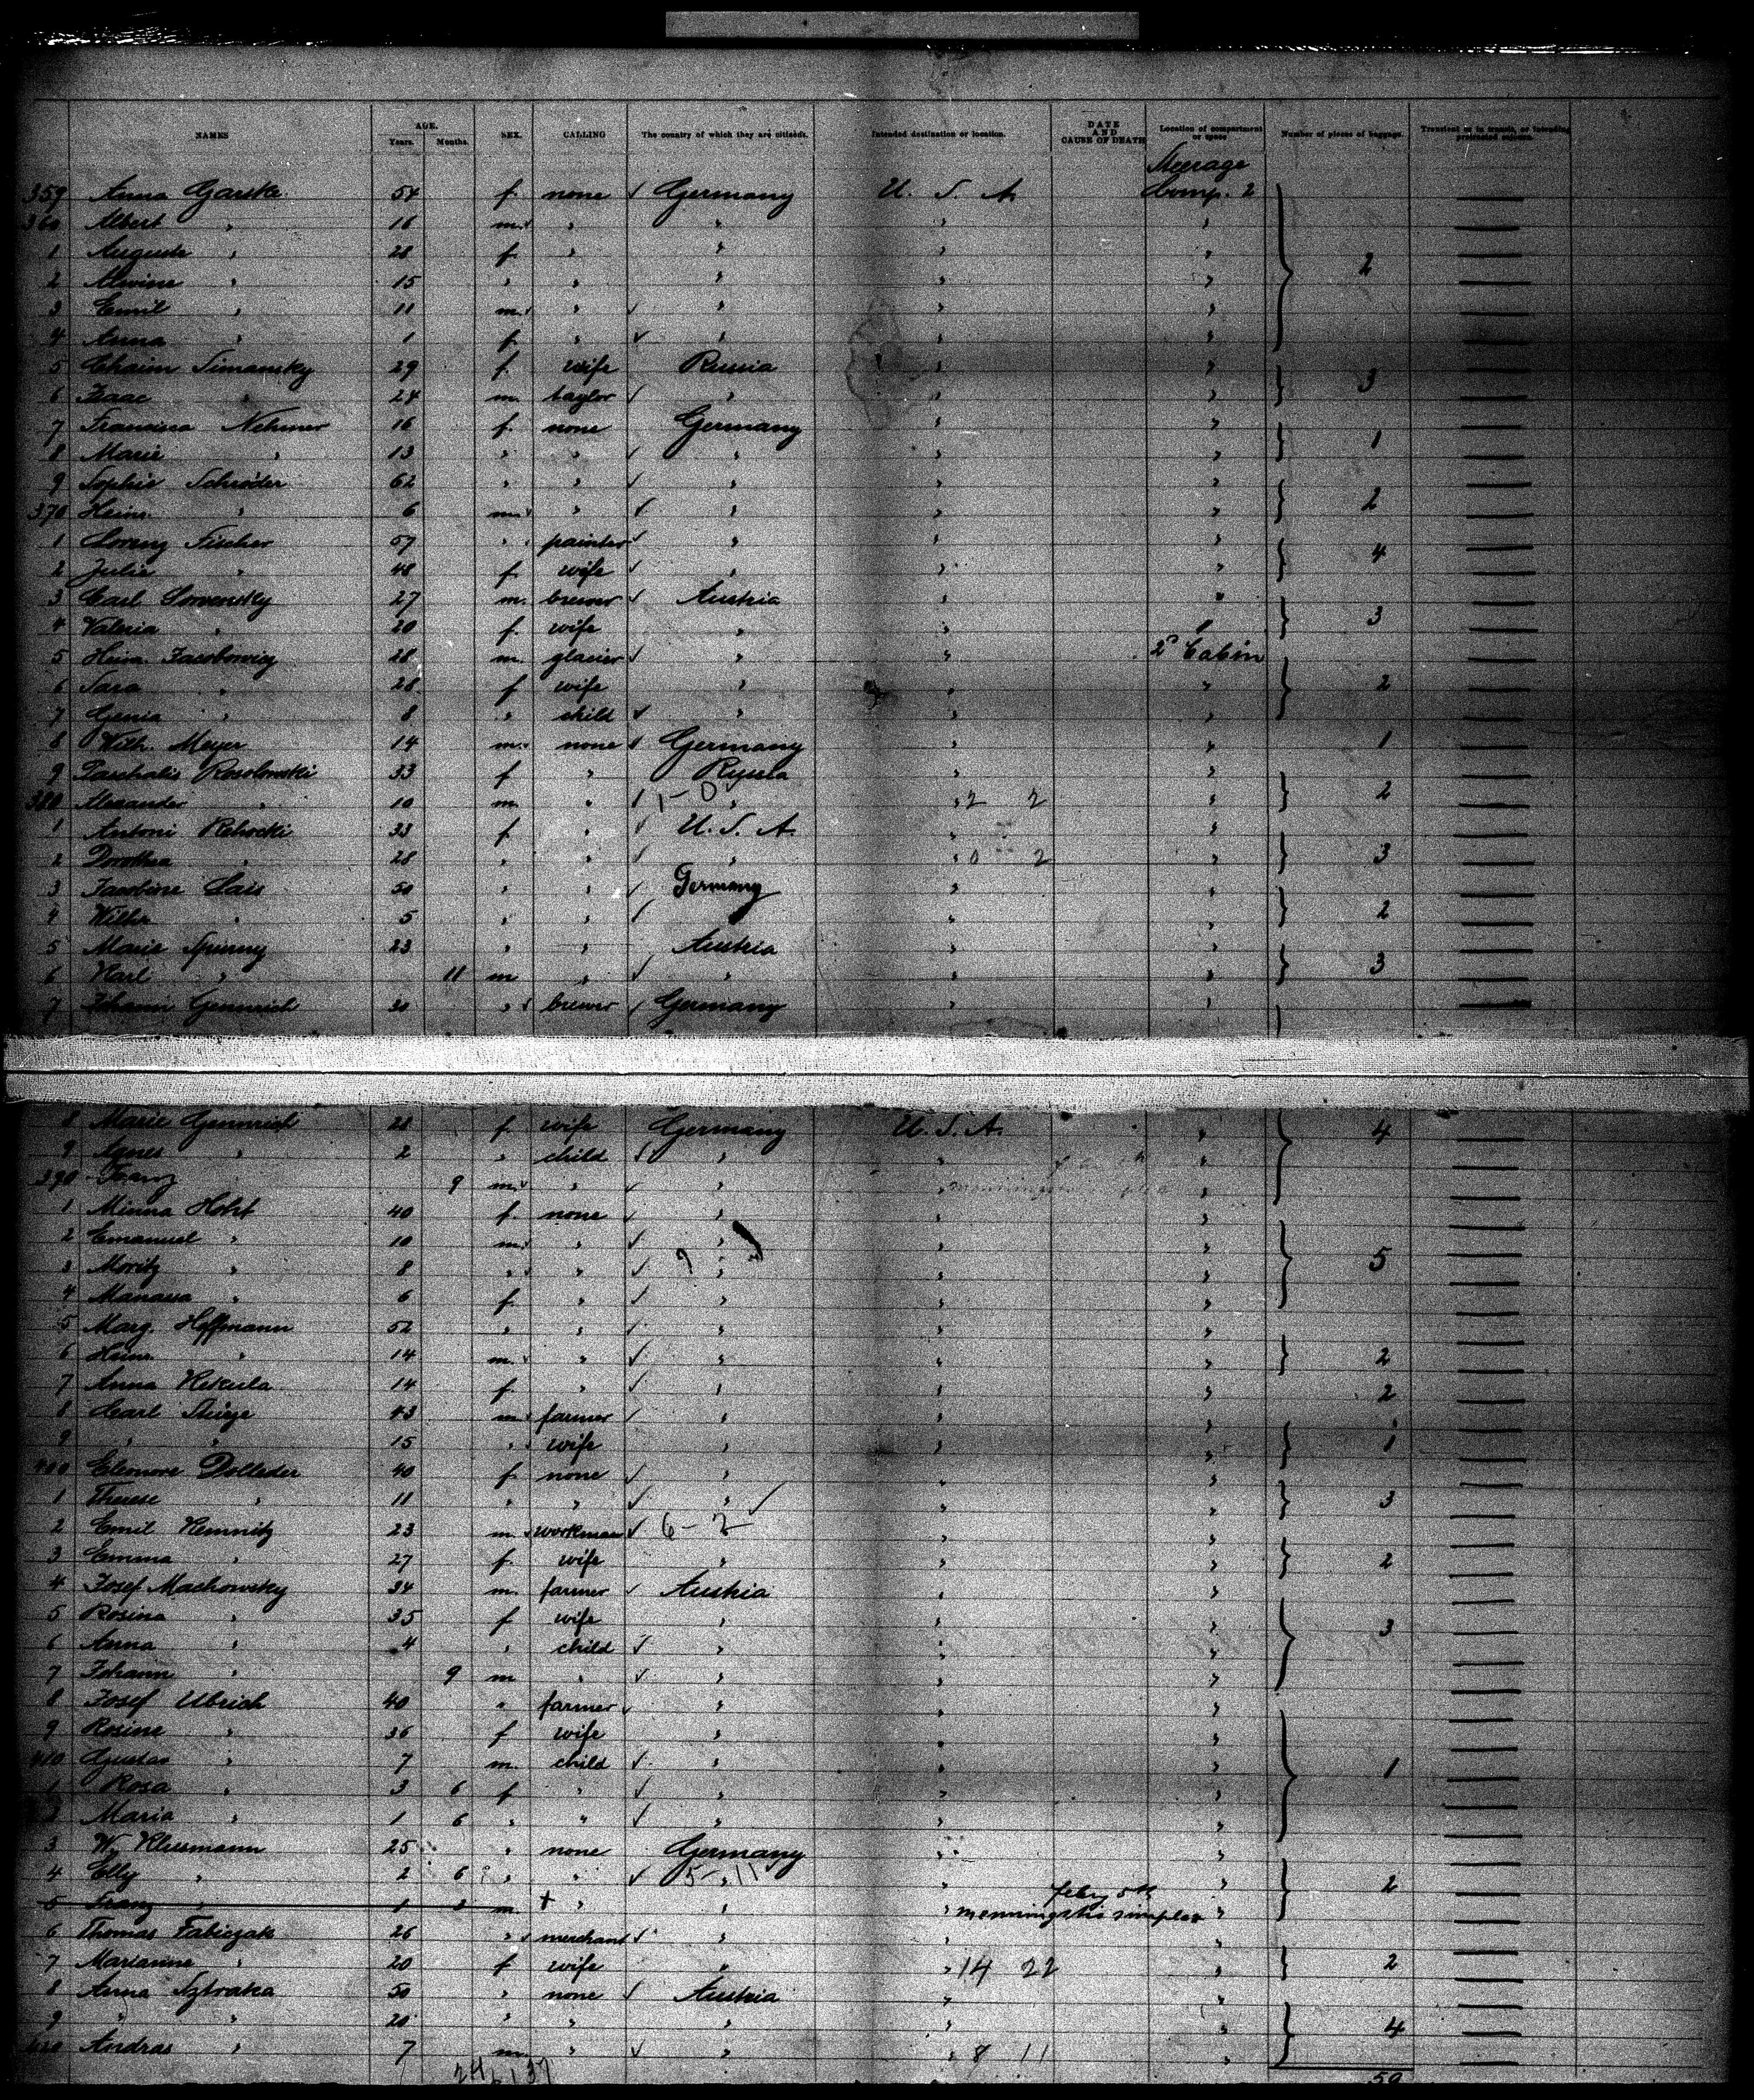 NAMES AGE. Years. Months. SEX. CALLING The country of which they are citizens. Intended destination or location. DATE AND CAUSE OF DEATH Location of compartment or space Number of pieces of baggage. Transient or in transit, or intending protracted sojourn.
Steerage
359 Anna Garske 54 f. none ✓ Germany U. S. A. Comp. 2
360 Albert " 16 m. " " " "
1 Auguste " 28 f. " " " " 2
2 Alwine " 15 " " " " "
3 Emil " 11 m. " ✓ " " "
4 Anna " 1 f. " ✓ " " "
5 Chaim Simansky 29 f. wife Russia " " 3
6 Isaac " 24 m. taylor ✓ " " "
7 Francisca Nehmer 16 f. none Germany " " 1
8 Marie " 13 " " ✓ " " "
9 Sophie Schröder 62 " " ✓ " " " 2
370 Heinr. " 6 m. " ✓ " " "
1 Lorenz Fischer 57 " painter ✓ " " " 4
2 Julie " 48 f. wife ✓ " " "
3 Carl 27 m. brewer ✓ Austria " " 3
4 Valeria " 20 f. wife " " "
5 Heim. Jacobowicz 28 m. glacier ✓ " " 2d Cabin
6 Sara " 28 f wife " " " 2
7 Genia " 8 " child ✓ " " "
8 Wilh. Meyer 14 m. none ✓ Germany " " 1
9 Paschalis Rosolowski 33 f " Russia " "
380 Alexander " 10 m. " ✓ 1-0 " " 2 2 " 2
1 Antoni Rehocki 33 f " ✓ U. S. A. " "
2 Dorothea " 28 " " ✓ " " 0 2 " 3
3 Jacobine Lais 50 " " ✓ Germany " "
4 " 5 " " ✓ " " 2
5 Marie Spurny 23 " " Austria " "
6 Karl " 11 m " ✓ " " " 3
7 Johann Gennrich 30 " brewer ✓ Germany " "
8 Marie Gennrich 28 f. wife Germany U. S. A. " 4
9 Agnes " 2 " child ✓ " " "
390 Franz 9 m. " ✓ " " "
1 Minna Holst 40 f. none ✓ " " "
2 Emanuel " 10 m. " ✓ " " "
3 Moritz " 8 " " ✓ " " " 5
4 Manassa " 6 f. " ✓ " " "
5 Marg. Hoffmann 52 " " ✓ " " "
6 Heinr. " 14 m. " ✓ " " " 2
7 Anna Kekula 14 f. " ✓ " " " 2
8 Carl 43 m farmer ✓ " " "
9 " " 15 " wife " " " 1
400 Eleonore Dolleder 40 f. none ✓ " " "
1 Therese " 11 " " ✓ " ✓ " " 3
2 Emil Kemnitz 23 m. workman ✓ 6-2 " "
3 Emma " 27 f. wife " " " 2
4 Josef Machowsky 34 m. farmer ✓ Austria " "
5 Rosina " 35 f wife " " " 3
6 Anna " 4 " child ✓ " " "
7 Johann " 9 m " ✓ " " "
8 Josef Ulrich 40 " farmer ✓ " " "
9 Rosine " 36 f wife " " "
410 Gustav " 7 m. child ✓ " " " 1
1 Rosa " 3 6 f " ✓ " " "
2 Maria " 1 6 " " ✓ " " "
3 W. Klusmann 25 " none Germany " "
4 Elly " 2 6 " " ✓ 5-11 " " 2
5 Franz " 1 3 m. † " " " feby 5th menningitis simplex "
6 Thomas Fabiszak 26 " merchant ✓ " " "
7 Marianne " 20 f wife " " 14 22 " 2
8 Anna Sztraka 50 " none ✓ Austria " "
9 " " 20 " " " " " 4
420 Andras " 7 m. " ✓ " " 8 11 "
59